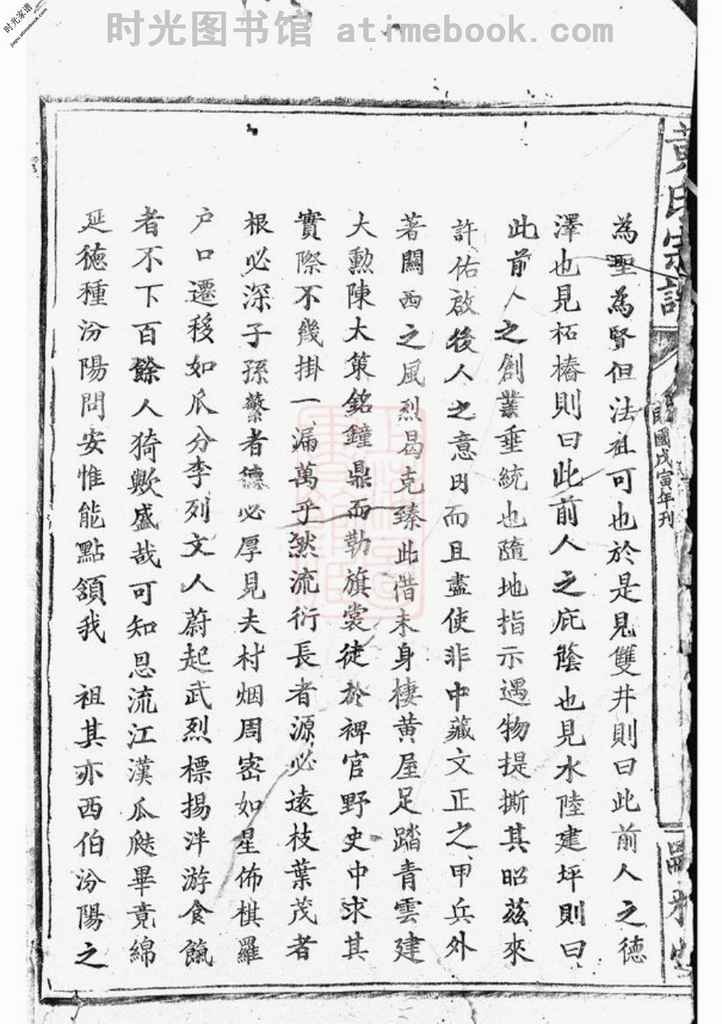 时光图书馆 atimebook.com
时光家谱
黃氏宗譜
民國戊寅年刊
為聖為賢但法祖可也於是見雙井則曰此前人之德
澤也見柘椿則曰此前人之庇蔭也見水陸建坪則曰
此前人之創業垂統也隨地指示遇物提撕其昭茲來
許佑啟後人之意因而且盡使非中藏文正之甲兵外
著關西之風烈曷克臻此借未身棲黃屋足踏青雲建
大勳陳大策銘鐘鼎而勒旗裳徒於稗官野史中求其
實際不幾掛一漏萬乎然流衍長者源必遠枝葉茂者
根必深子孫蕃者德必厚見夫村烟周密如星佈棋羅
户口遷移如瓜分李列文人蔚起武烈標揚泮游食餼
者不下百餘人猗歟盛哉可知恩流江漢瓜瓞畢竟綿
延德種汾陽問安惟能點頷我　祖其亦西伯汾陽之